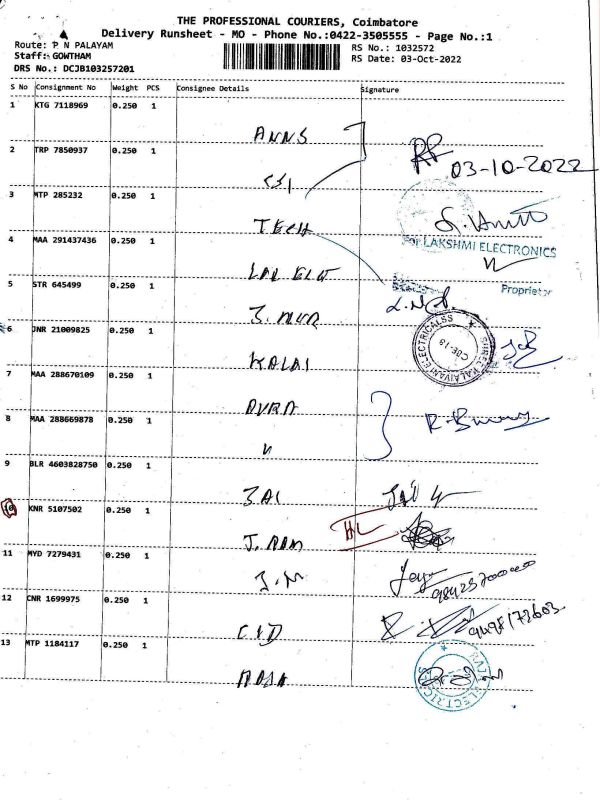 THE PROFESSIONAL COURIERS, Coimbatore
Delivery Runsheet - MO - Phone No.:0422-3505555 - Page No.:1
Route: P N PALAYAM
RS No.: 1032572
Staff: GOWTHAM
RS Date: 03-Oct-2022
DRS No.: DCJB103257201
S No Consignment No Weight PCS Consignee Details Signature
1 KTG 7118969 0.250 1
ANNS
2 TRP 7850937 0.250 1
03-10-2022
3 MTP 285232 0.250 1
TECH
4 MAA 291437436 0.250 1
For LAKSHMI ELECTRONICS
5 STR 645499 0.250 1
Proprietor
6 JNR 21009825 0.250 1
KALAI
SHREE KALAIVANI ELECTRICALSS
CBE-13
7 MAA 288670109 0.250 1
DURA
8 MAA 288669878 0.250 1
9 BLR 4603828750 0.250 1
JAI
10 KNR 5107502 0.250 1
J. RAM
11 MYD 7279431 0.250 1
J.M
12 CNR 1699975 0.250 1
13 MTP 1184117 0.250 1